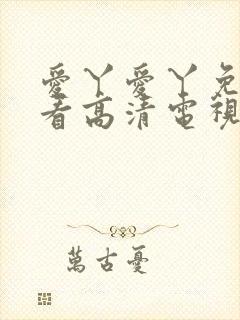 愛丫愛丫免
看高清電視
萬古憂